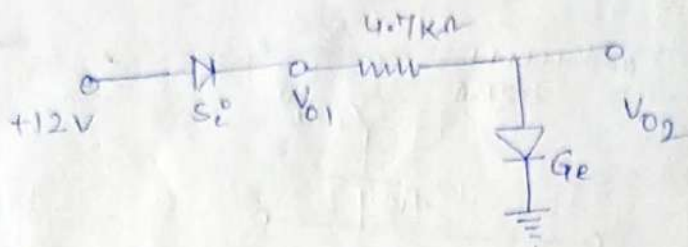 4.7KΩ
+12V Si Vo1 Vo2
Ge